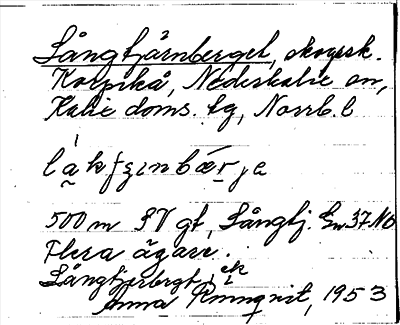 Långtjärnberget, skogssk.
Korpikå, Nederkalix sn,
Kalix doms. lg, Norrb. l
500 m SV gt, Långtj. 37 NO
Flera ägare.
Långtjärbergt,
Anna Rönnqvist, 1953